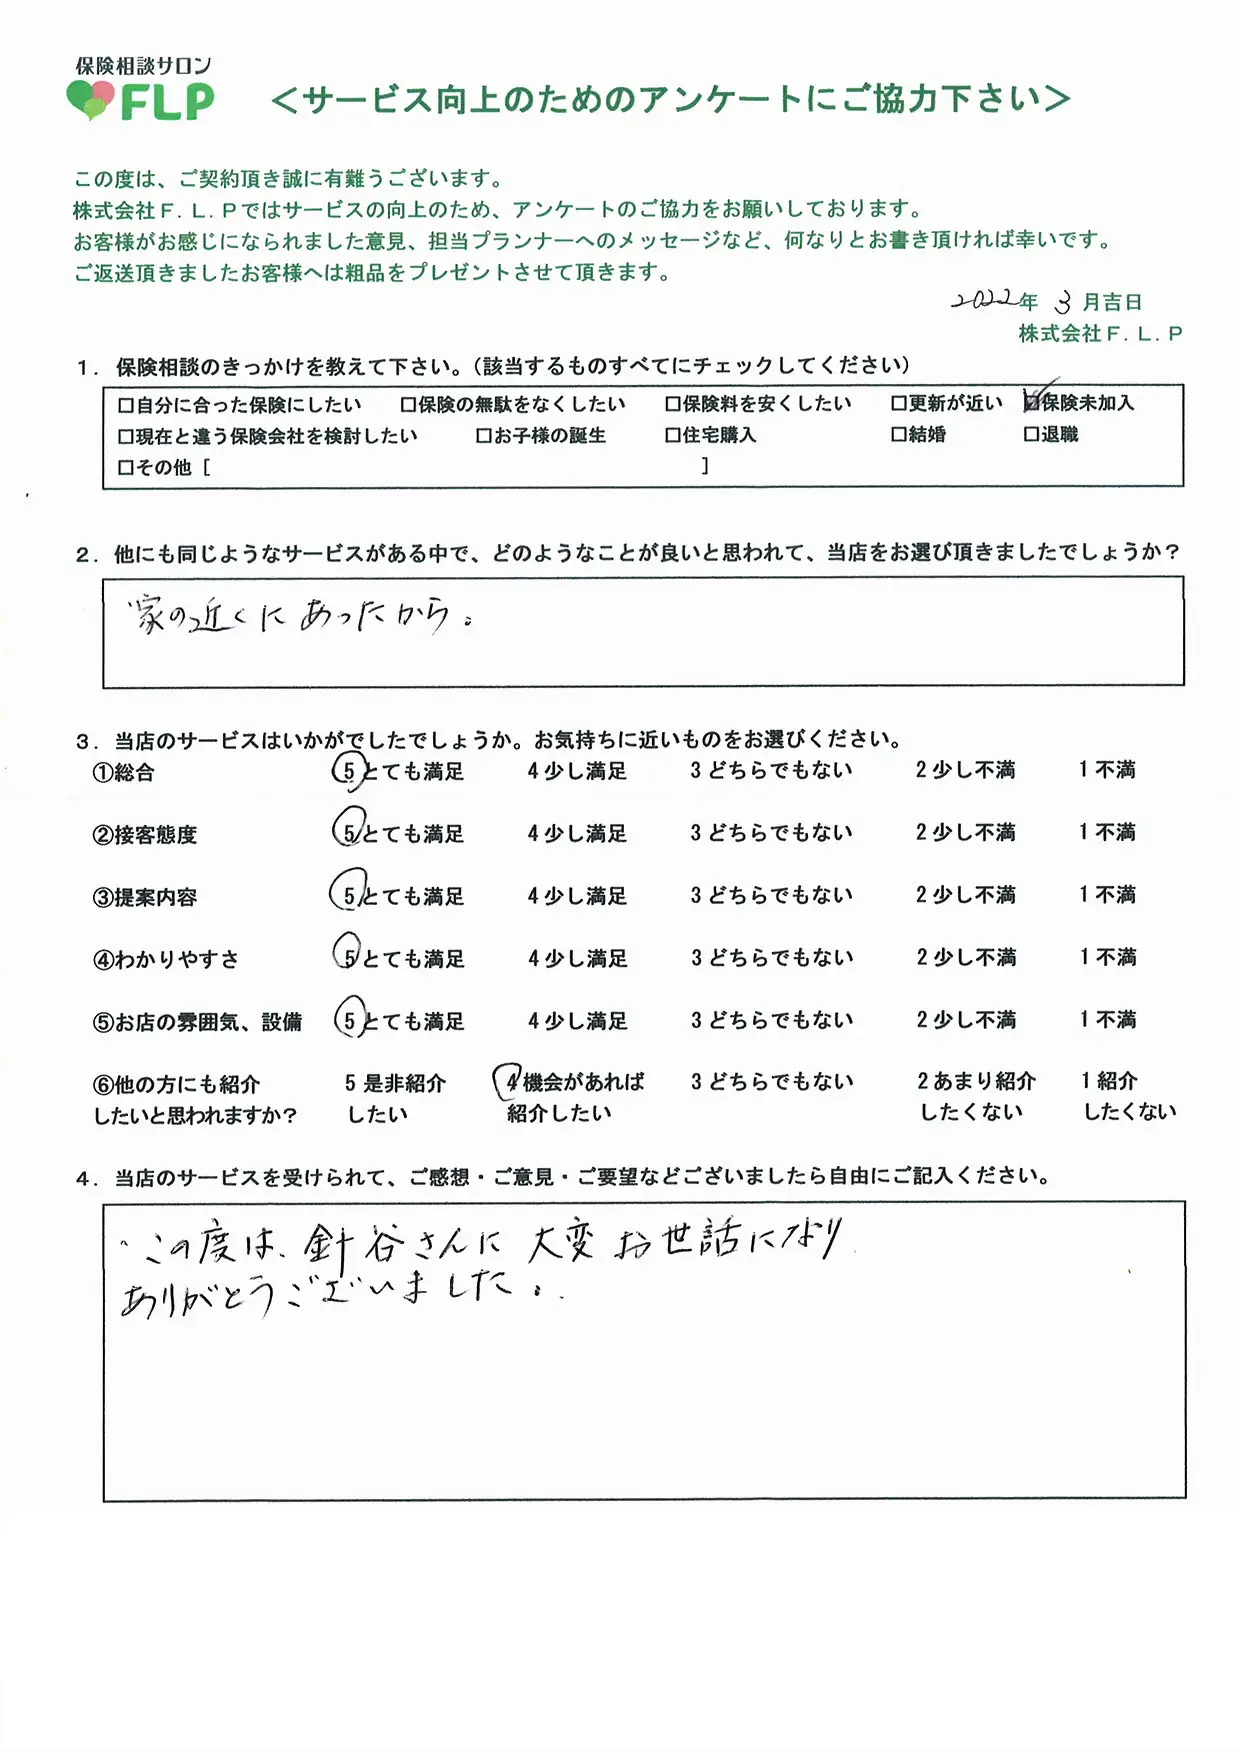 保険相談サロン
FLP
＜サービス向上のためのアンケートにご協力下さい＞
この度は、ご契約頂き誠に有難うございます。
株式会社Ｆ．Ｌ．Ｐではサービスの向上のため、アンケートのご協力をお願いしております。
お客様がお感じになられました意見、担当プランナーへのメッセージなど、何なりとお書き頂ければ幸いです。
ご返送頂きましたお客様へは粗品をプレゼントさせて頂きます。
2022年 3 月吉日
株式会社Ｆ．Ｌ．Ｐ
１．保険相談のきっかけを教えて下さい。（該当するものすべてにチェックしてください）
□自分に合った保険にしたい □保険の無駄をなくしたい □保険料を安くしたい □更新が近い ☑保険未加入
□現在と違う保険会社を検討したい □お子様の誕生 □住宅購入 □結婚 □退職
□その他［ ］
２．他にも同じようなサービスがある中で、どのようなことが良いと思われて、当店をお選び頂きましたでしょうか？
家の近くにあったから。
３．当店のサービスはいかがでしたでしょうか。お気持ちに近いものをお選びください。
①総合 5 とても満足 4 少し満足 3 どちらでもない 2 少し不満 1 不満
②接客態度 5 とても満足 4 少し満足 3 どちらでもない 2 少し不満 1 不満
③提案内容 5 とても満足 4 少し満足 3 どちらでもない 2 少し不満 1 不満
④わかりやすさ 5 とても満足 4 少し満足 3 どちらでもない 2 少し不満 1 不満
⑤お店の雰囲気、設備 5 とても満足 4 少し満足 3 どちらでもない 2 少し不満 1 不満
⑥他の方にも紹介 5 是非紹介 4 機会があれば 3 どちらでもない 2 あまり紹介 1 紹介
したいと思われますか？ したい 紹介したい したくない したくない
４．当店のサービスを受けられて、ご感想・ご意見・ご要望などございましたら自由にご記入ください。
この度は、針谷さんに大変お世話になり
ありがとうございました。